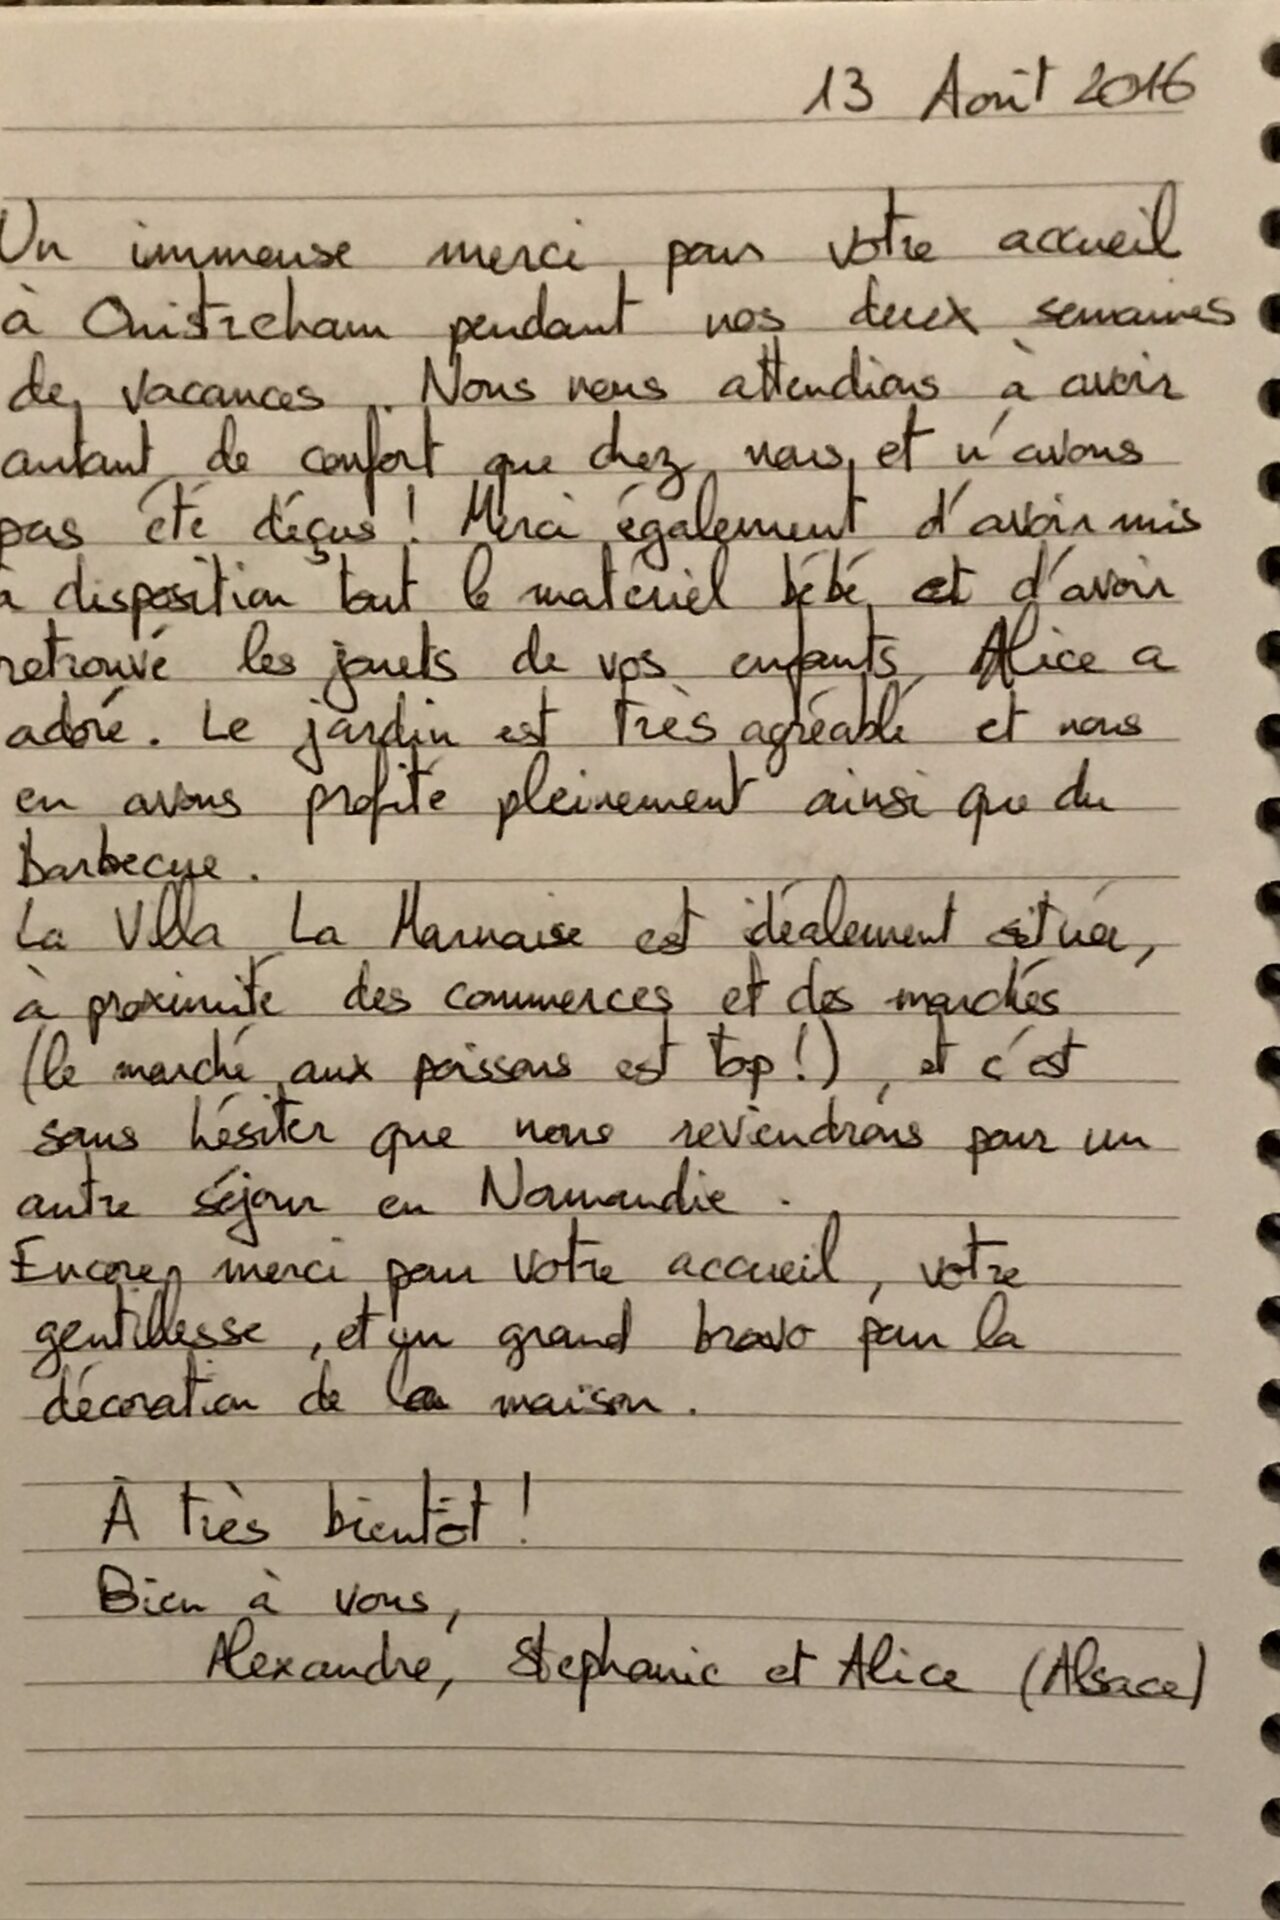 13 Août 2016
Un immense merci pour votre accueil
à Ouistreham pendant nos deux semaines
de vacances. Nous nous attendions à avoir
autant de confort que chez nous, et n'avons
pas été déçus ! Merci également d'avoir mis
à disposition tout le matériel bébé, et d'avoir
retrouvé les jouets de vos enfants, Alice a
adoré. Le jardin est très agréable et nous
en avons profité pleinement ainsi que du
barbecue.
La Villa La Marnaise est idéalement située,
à proximité des commerces et des marchés
(le marché aux poissons est top !), et c'est
sans hésiter que nous reviendrons pour un
autre séjour en Normandie.
Encore merci pour votre accueil, votre
gentillesse, et un grand bravo pour la
décoration de la maison.
À très bientôt !
Bien à vous,
Alexandre, Stephanie et Alice (Alsace)